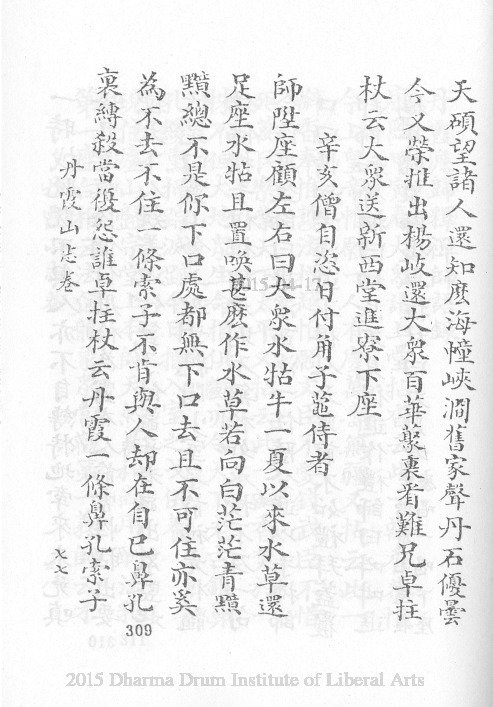 天碩望諸人還知麼海幢峽澗舊家聲丹石優曇
今又榮推出楊岐還大衆百華藂裏看難兄卓拄
杖云大衆送新西堂進寮下座
辛亥僧自恣日付角子䶴侍者
師陞座顧左右曰大衆水牯牛一夏以來水草還
足座水牯且置喚甚麼作水草若向白茫茫青黯
黯總不是你下口處都無下口去且不可住亦奚
為不去不住一條索子不肯與人却在自己鼻孔
裏縛殺當復怨誰卓拄杖云丹霞一條鼻孔索子
丹霞山志卷
七七
309
2015-04-17
2015 Dharma Drum Institute of Liberal Arts